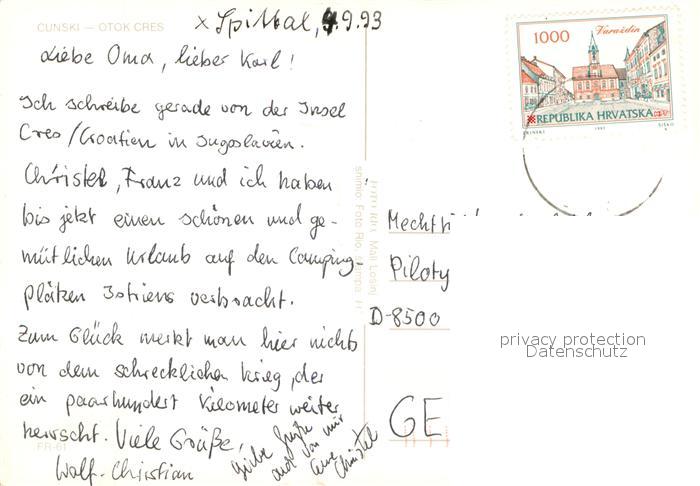 CUNSKI — OTOK CRES
x Spittal, 4.9.93
Liebe Oma, lieber Karl!
Ich schreibe gerade von der Insel
Cres/Croatien in Jugoslavien.
Christel, Franz und ich haben
bis jetzt einen schönen und ge-
mütlichen Urlaub auf den Camping-
plätzen Istriens verbracht.
Zum Glück merkt man hier nichts
von dem schrecklichen Krieg, der
ein paarhundert Kilometer weiter
herrscht. Viele Grüße,
Wolf-Christian
liebe Grüße
auch von mir
Eure
Christel
FR-61
Mali Lošinj
snimio: Foto Rio,
1000
Varaždin
REPUBLIKA HRVATSKA
Mechthi
Piloty
D-8500
GE
privacy protection
Datenschutz